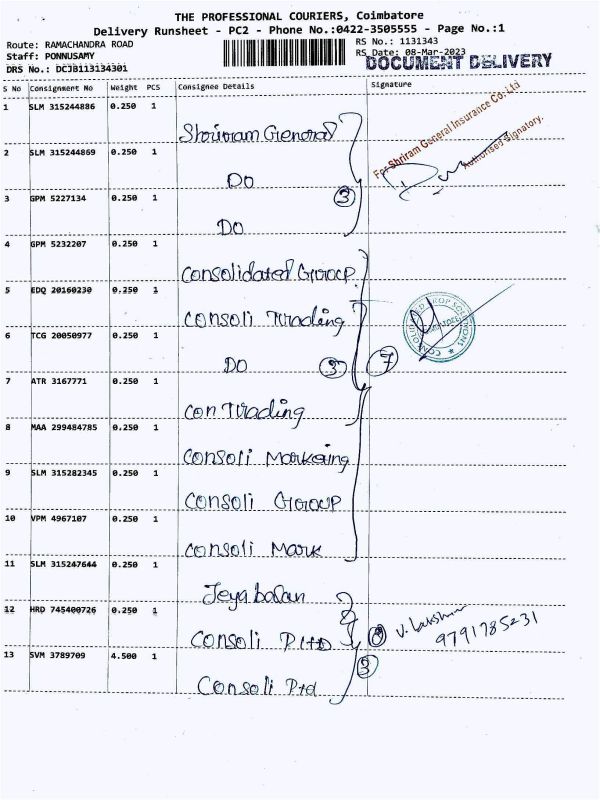 THE PROFESSIONAL COURIERS, Coimbatore
Delivery Runsheet - PC2 - Phone No.:0422-3505555 - Page No.:1
Route: RAMACHANDRA ROAD
RS No.: 1131343
Staff: PONNUSAMY
RS Date: 08-Mar-2023
DOCUMENT DELIVERY
DRS No.: DCJB113134301
S No Consignment No Weight PCS Consignee Details Signature
1 SLM 315244886 0.250 1
Shriram General
For Shriram General Insurance Co. Ltd
Authorised Signatory.
2 SLM 315244869 0.250 1
DO
3 GPM 5227134 0.250 1
3
DO
4 GPM 5232207 0.250 1
Consolidated Group
5 EDQ 20160230 0.250 1
Consoli Trading
6 TCG 20050977 0.250 1
DO 3 7
7 ATR 3167771 0.250 1
Con Trading
8 MAA 299484785 0.250 1
Consoli Markeing
9 SLM 315282345 0.250 1
Consoli Group
10 VPM 4967107 0.250 1
Consoli Mark
11 SLM 315247644 0.250 1
Jeyabalan
12 HRD 745400726 0.250 1
Consoli PLtD
V. Lakshm
9791785231
13 SVM 3789709 4.500 1
3
Consoli Ptd